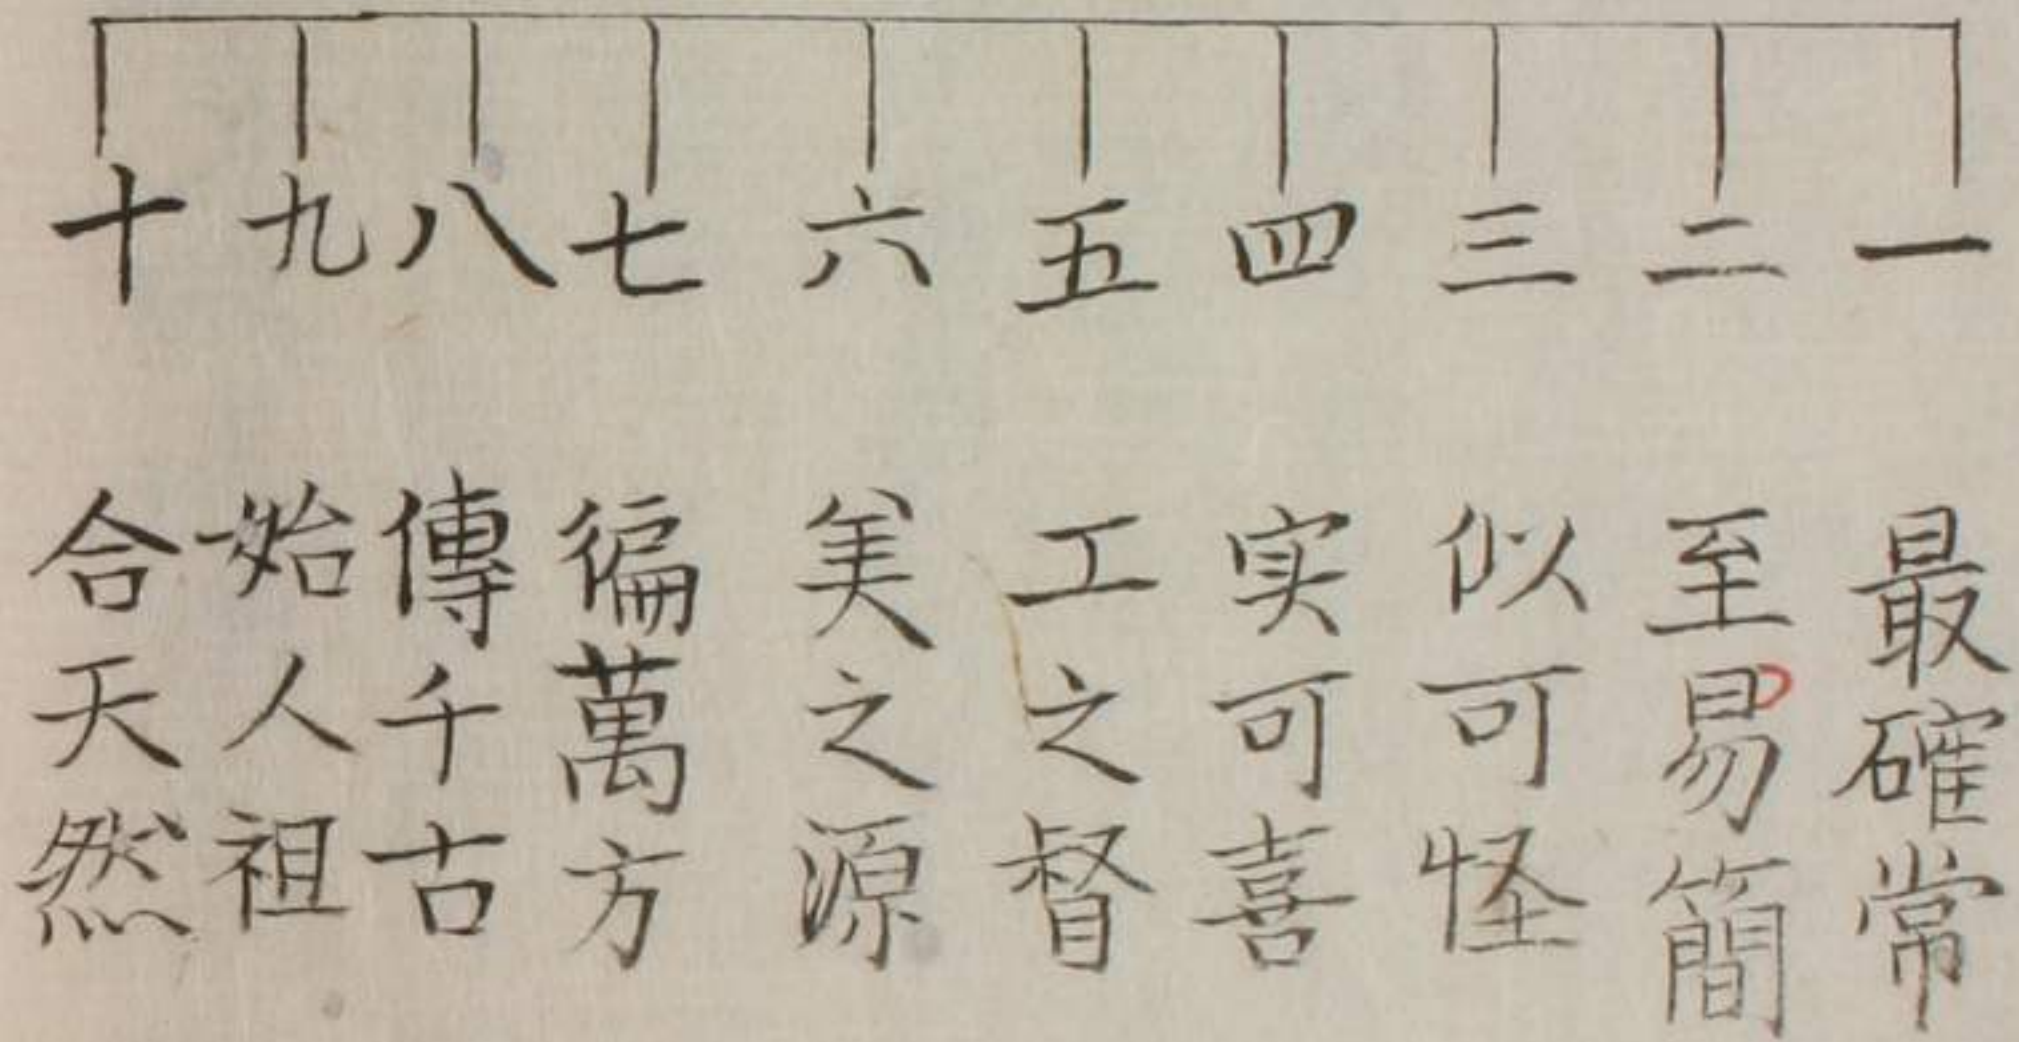 一 最確常
二 至易簡
三 似可怪
四 实可喜
五 工之督
六 美之源
七 徧萬方
八 傳千古
九 始人祖
十 合天然